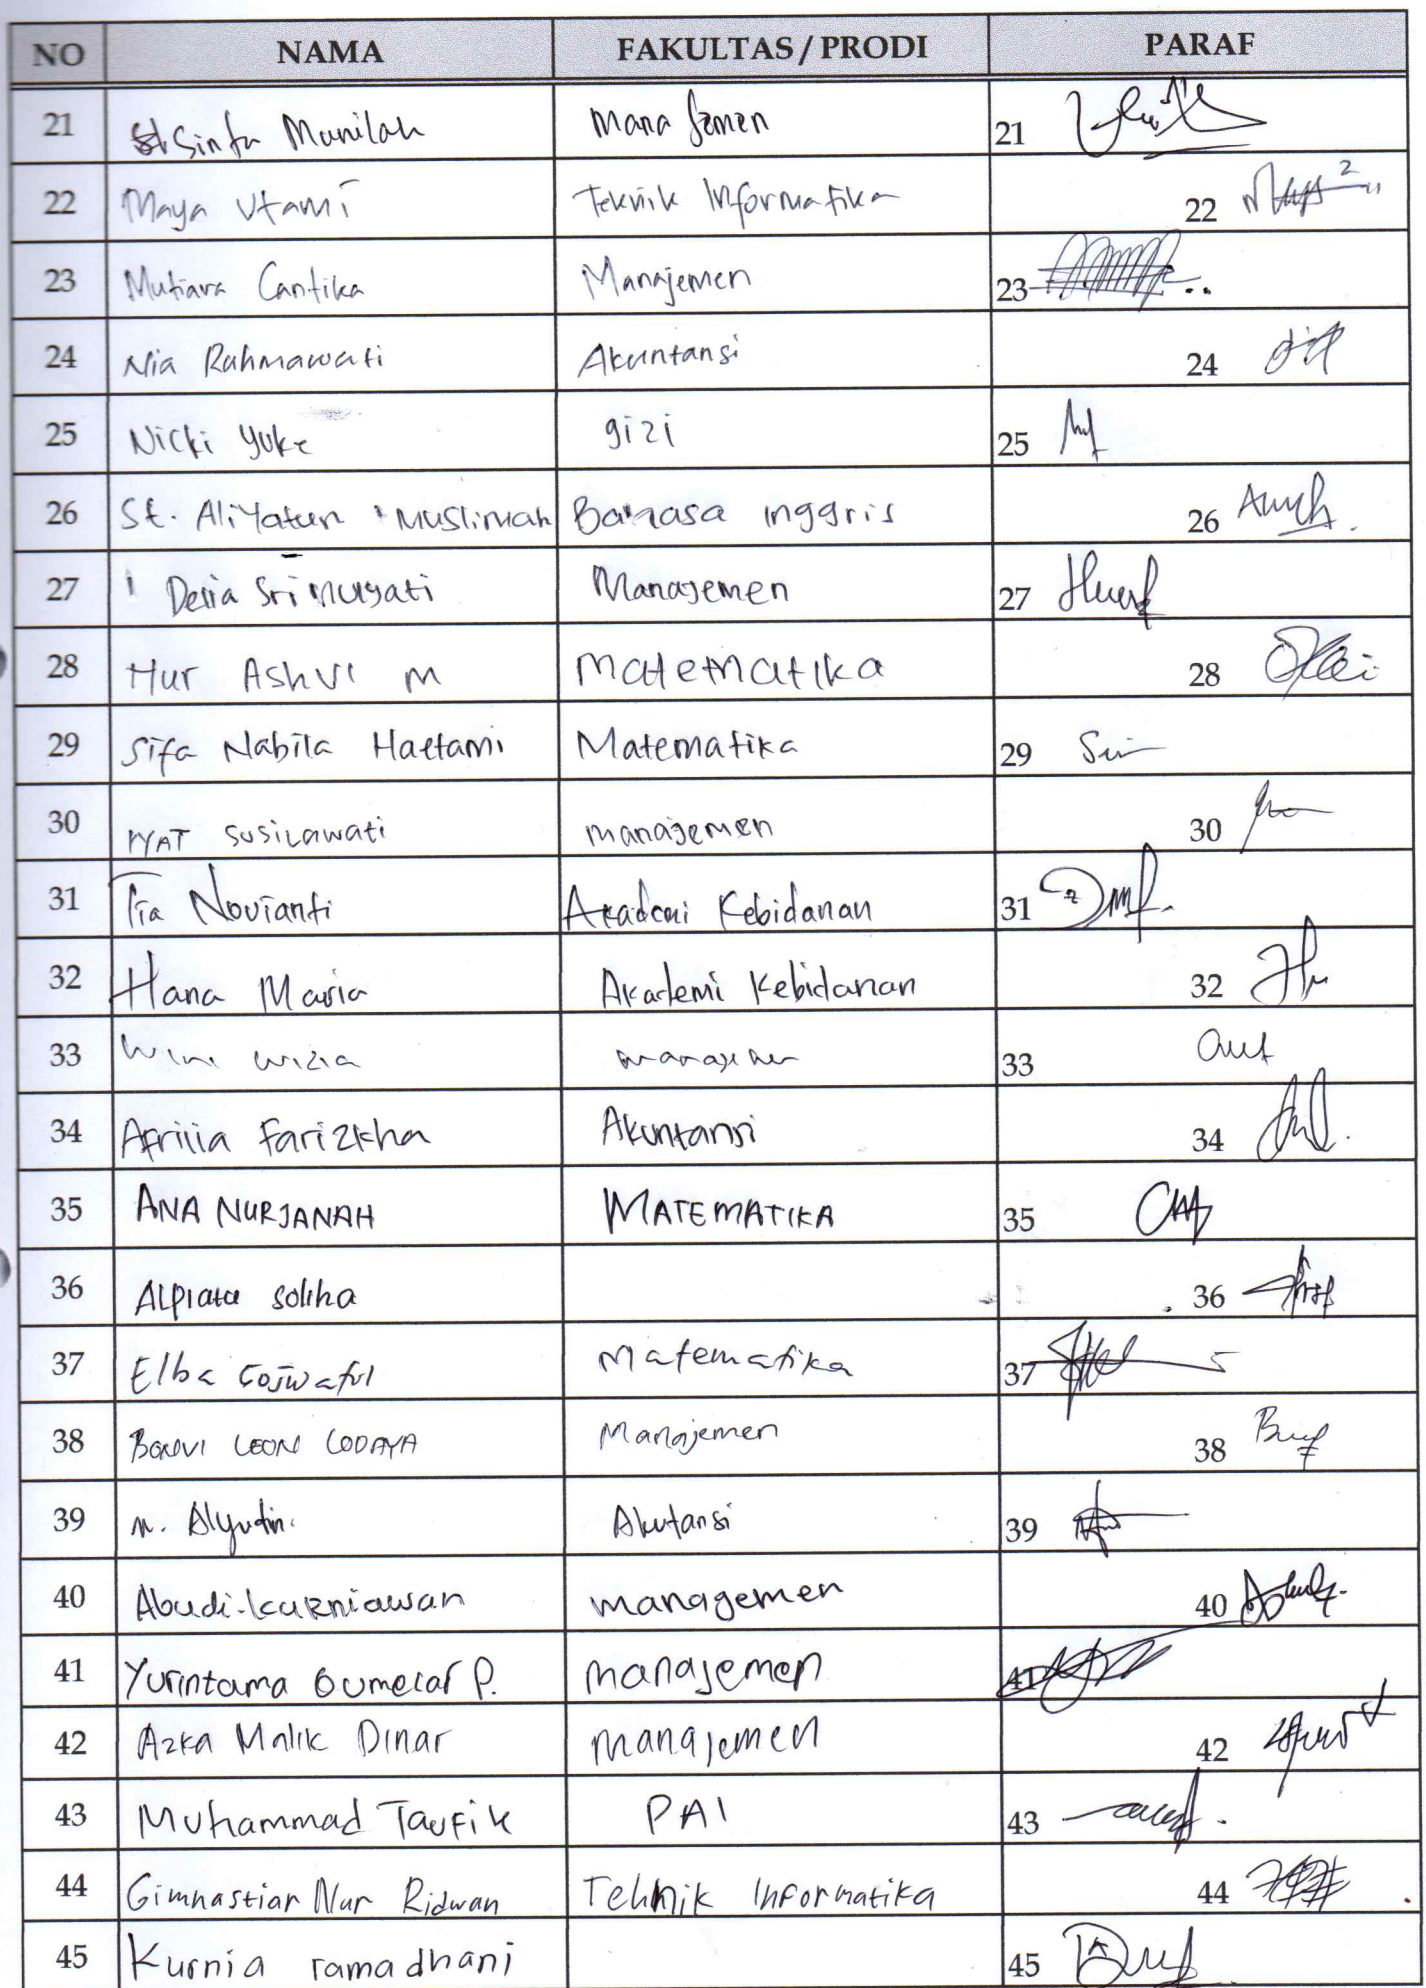 NO NAMA FAKULTAS / PRODI PARAF
21 Sinta Manilah Manajemen 21
22 Maya Utami Teknik Informatika 22
23 Mutiara Cantika Manajemen 23
24 Nia Rahmawati Akuntansi 24
25 Nicki Yuke gizi 25
26 St. Aliyatun Muslimah Bahasa inggris 26
27 Desia Sri Mulyati Manajemen 27
28 Nur Ashvi M Matematika 28
29 Sifa Nabila Hattami Matematika 29
30 YYAT SUSILAWATI manajemen 30
31 Tia Novianti Akademi Kebidanan 31
32 Hana Maria Akademi Kebidanan 32
33 Wini wizia manajemen 33
34 Afrilia Farizkha Akuntansi 34
35 ANA NURJANAH MATEMATIKA 35
36 soliha 36
37 Elba Matematika 37
38 LEONI LODAYA Manajemen 38
39 M. Alyudin Akutansi 39
40 Abudi-kurniawan managemen 40
41 Yurintama Gumelar P. manajemen 41
42 Azka Malik Dinar manajemen 42
43 Muhammad Taufik PAI 43
44 Gimnastiar Nur Ridwan Tehnik Informatika 44
45 Kurnia ramadhani 45